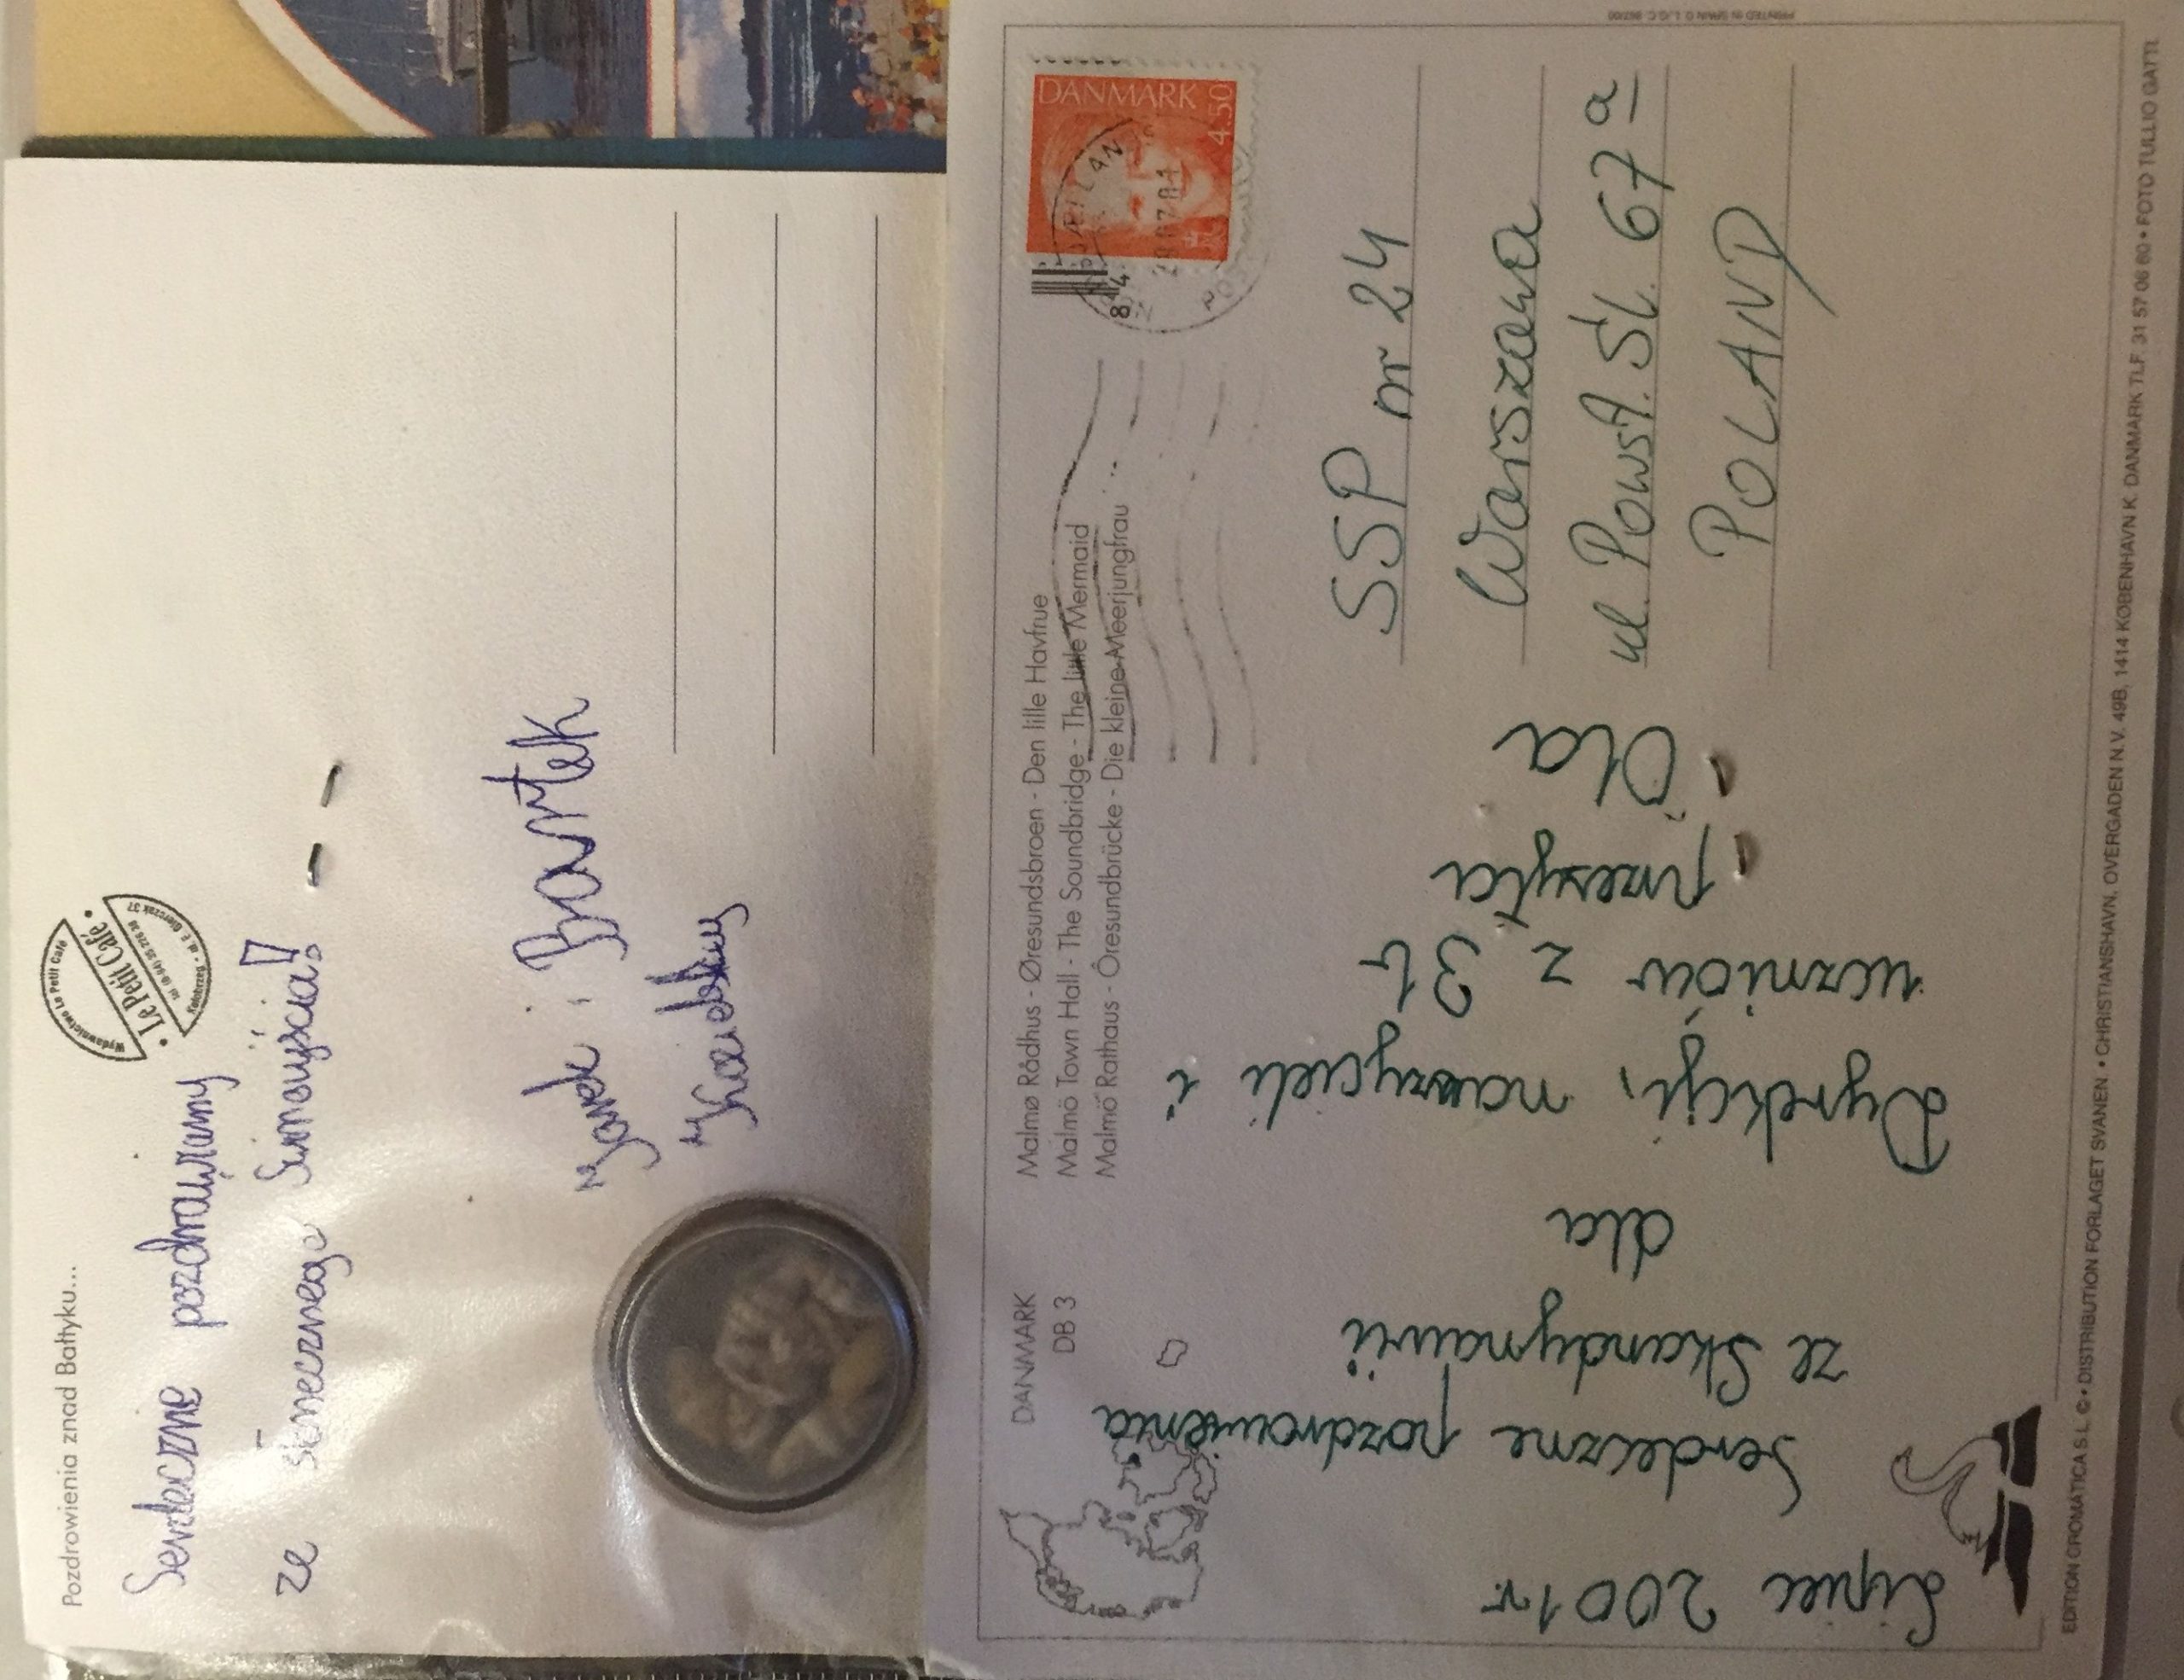 Pozdrowienia znad Bałtyku...
Wydawnictwo Le Petit Café
Le Petit Café
Kołobrzeg
Serdecznie pozdrawiamy
ze słonecznego Świnoujścia!
Janek i Bartek
DANMARK
DB 3
Malmø Rådhus - Øresundsbroen - Den lille Havfrue
Malmö Town Hall - The Soundbridge - The little Mermaid
Malmö Rathaus - Öresundbrücke - Die kleine Meerjungfrau
DANMARK
4.50
84
SSP nr 24
Warszawa
ul. Powst. Śl. 67 a
POLAND
Lipiec 2001 r.
Serdeczne pozdrowienia
ze Skandynawii
dla
Dyrekcji, nauczycieli i
uczniów z 3b
przesyła
Ola
PRINTED IN SPAIN
EDITION CROMATICA S.L. © • DISTRIBUTION FORLAGET SVANEN • CHRISTIANSHAVN, OVERGADEN N.V. 49B, 1414 KØBENHAVN K. DANMARK TLF. 31 57 06 60 • FOTO TULLIO GATTI